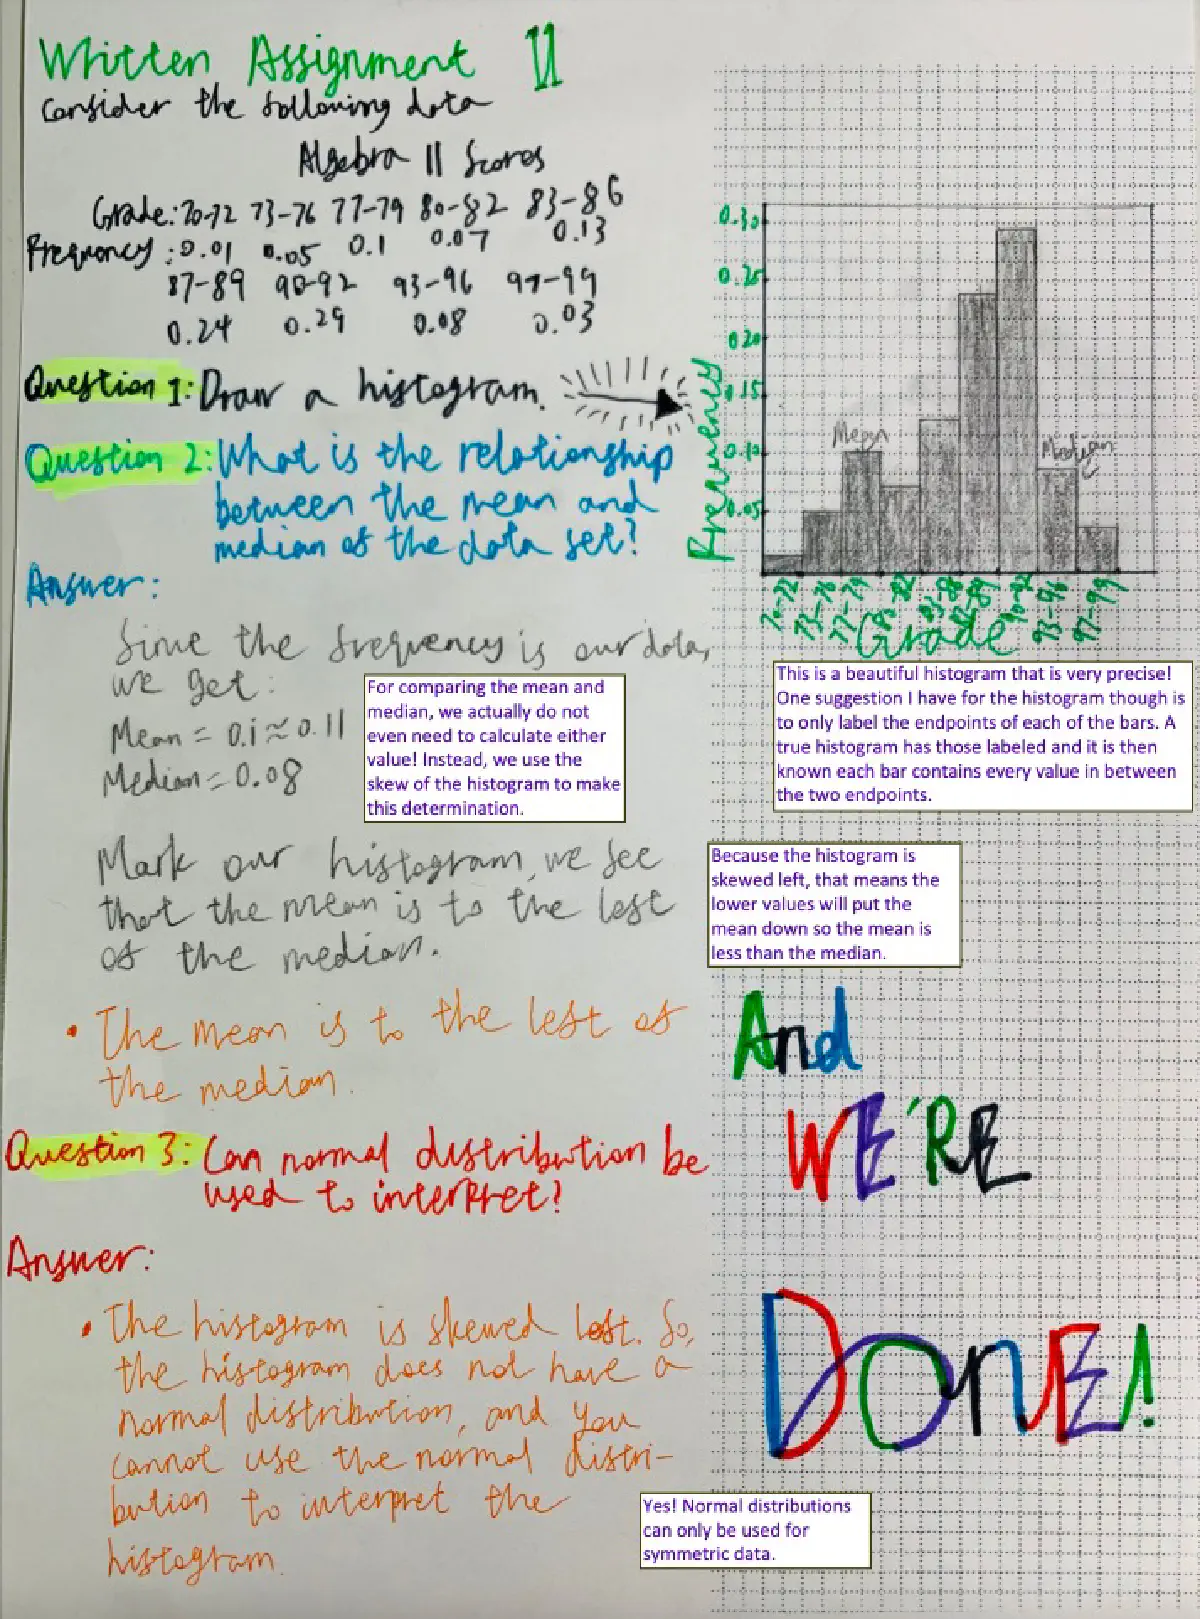 Written Assignment 11
Consider the following data
Algebra II Scores
Grade: 70-72 73-76 77-79 80-82 83-86
Frequency: 0.01 0.05 0.1 0.07 0.13
87-89 90-92 93-96 97-99
0.24 0.29 0.08 0.03
Question 1: Draw a histogram.
Question 2: What is the relationship
between the mean and
median of the data set?
Answer:
Since the frequency is our data,
we get:
Mean = 0.1̇ ≈ 0.11
Median = 0.08
For comparing the mean and
median, we actually do not
even need to calculate either
value! Instead, we use the
skew of the histogram to make
this determination.
Mark our histogram, we see
that the mean is to the left
of the median.
• The mean is to the left of
the median.
Question 3: Can normal distribution be
used to interpret?
Answer:
• The histogram is skewed left. So,
the histogram does not have a
normal distribution, and you
cannot use the normal distri-
bution to interpret the
histogram.
0.30
0.25
0.20
0.15
0.10
0.05
Frequency
Mean
Median
70-72
73-76
77-79
80-82
83-86
87-89
90-92
93-96
97-99
Grade
This is a beautiful histogram that is very precise!
One suggestion I have for the histogram though is
to only label the endpoints of each of the bars. A
true histogram has those labeled and it is then
known each bar contains every value in between
the two endpoints.
Because the histogram is
skewed left, that means the
lower values will put the
mean down so the mean is
less than the median.
And
WE'RE
DONE!
Yes! Normal distributions
can only be used for
symmetric data.